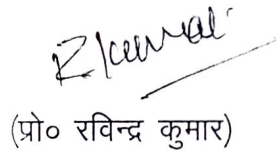 Rkumar
(प्रो० रविन्द्र कुमार)